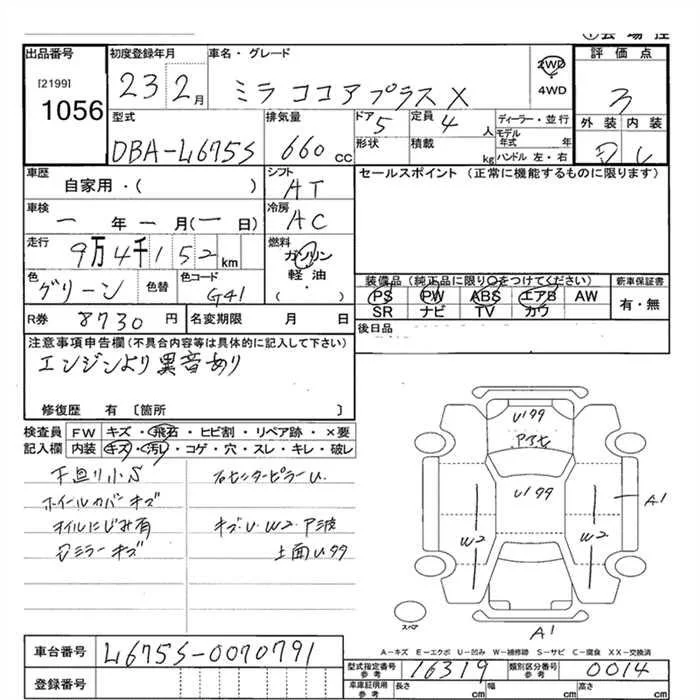 出品番号 初度登録年月 車名・グレード 評価点
[2199]
1056
23 2月 ミラ ココアプラス X 2WD 4WD 3
型式 排気量 ドア 5 定員 4 人 ディーラー・並行 外装 内装
DBA-L675S 660 cc 形状 積載 kg モデル年式 年 ハンドル 左・右
車歴 シフト セールスポイント (正常に機能するものに限ります)
自家用・( ) AT
車検 冷房
一年一月(一日) AC
走行 燃料
9万4千152km ガソリン
軽油
( )
色 色替 色コード 装備品 (純正品に限り○をつけてください) 新車保証書
グリーン G41 PS PW ABS エアB AW 有・無
SR ナビ TV カワ
R券 8730円 名変期限 月 日 後日品
注意事項申告欄(不具合内容等は具体的に記入して下さい)
エンジンより異音あり
修復歴 有 〔箇所 〕
検査員 FW キズ・飛石・ヒビ割・リペア跡・×要
記入欄 内装 キズ・汚レ・コゲ・穴・スレ・キレ・破レ
下廻り小S
ホイールカバーキズ キズ・U・W2・
オイルにじみ有
ミラーキズ
U
A1
W2 W2
スペア
A1
A-キズ E-エクボ U-凹み W-補修跡 S-サビ C-腐食 XX-交換済
車台番号 L675S-0070791
登録番号
型式指定番号 参考 16319 類別区分番号 参考 0014
車庫証明用 参考 長さ cm 幅 cm 高さ cm